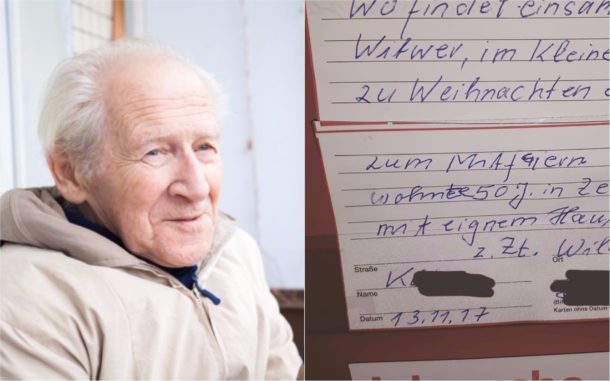 wo findet einsam
Witwer, im Kleine
zu Weihnachten
zum Mitfeiern
wohnte 50 J. in Ze
mit eignem Hau
z. Zt. Wil
Straße
Ort
K
Name
Datum
13.11.17
Karten ohne Datum